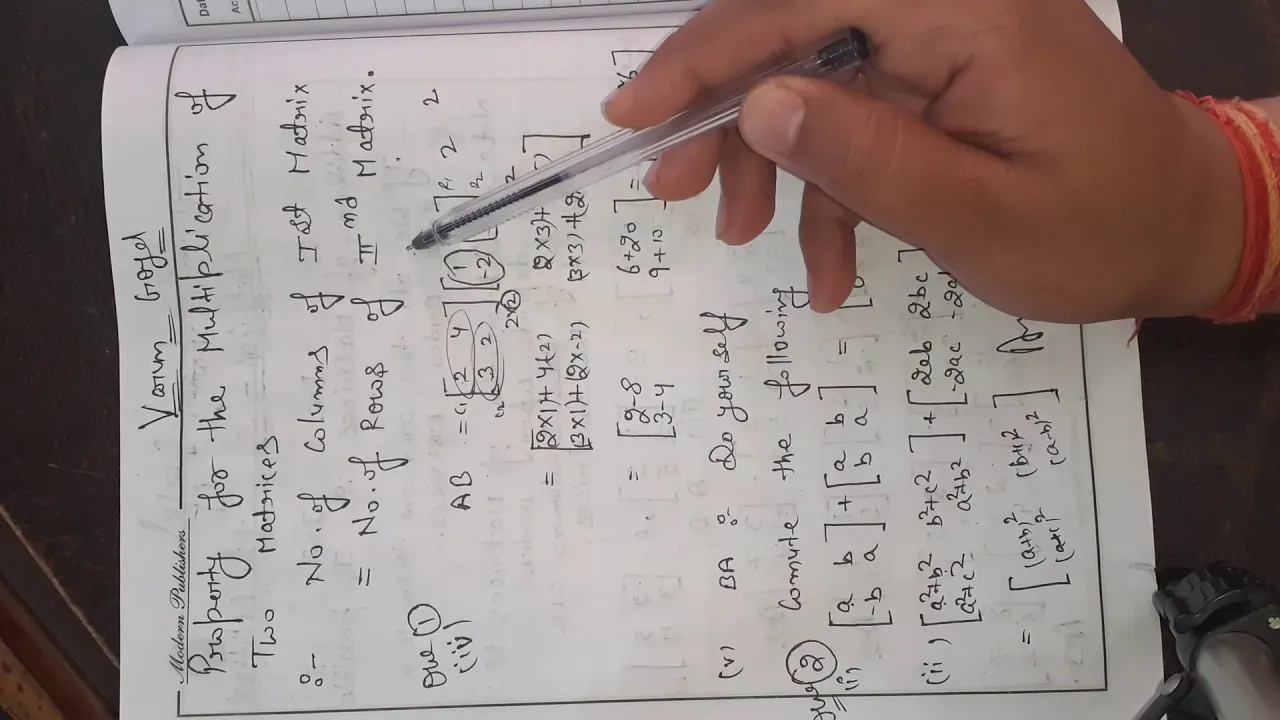 Modern Publishers
Varun Goyel
Property for the Multiplication of
Two Matrices
:- No. of Columns of Ist Matrix
= No. of Rows of IInd Matrix.
Que ①
(iv) AB = [2 4 3 2] [1 -2
2×2
= [(2×1)+4(-2) (2×3)+
(3×1)+(2×-2) (3×3)+(2
= [2-8 6+20
3-4 9+10] =
(v) BA :- Do yourself
Que ② Commute the following
(i) [a b -b a] + [a b b a] =
(ii) [a²+b² b²+c² a²+c² a²+b²] + [2ab 2bc -2ac -2ab
= [(a+b)² (b+c)² (a+c)² (a-b)²]